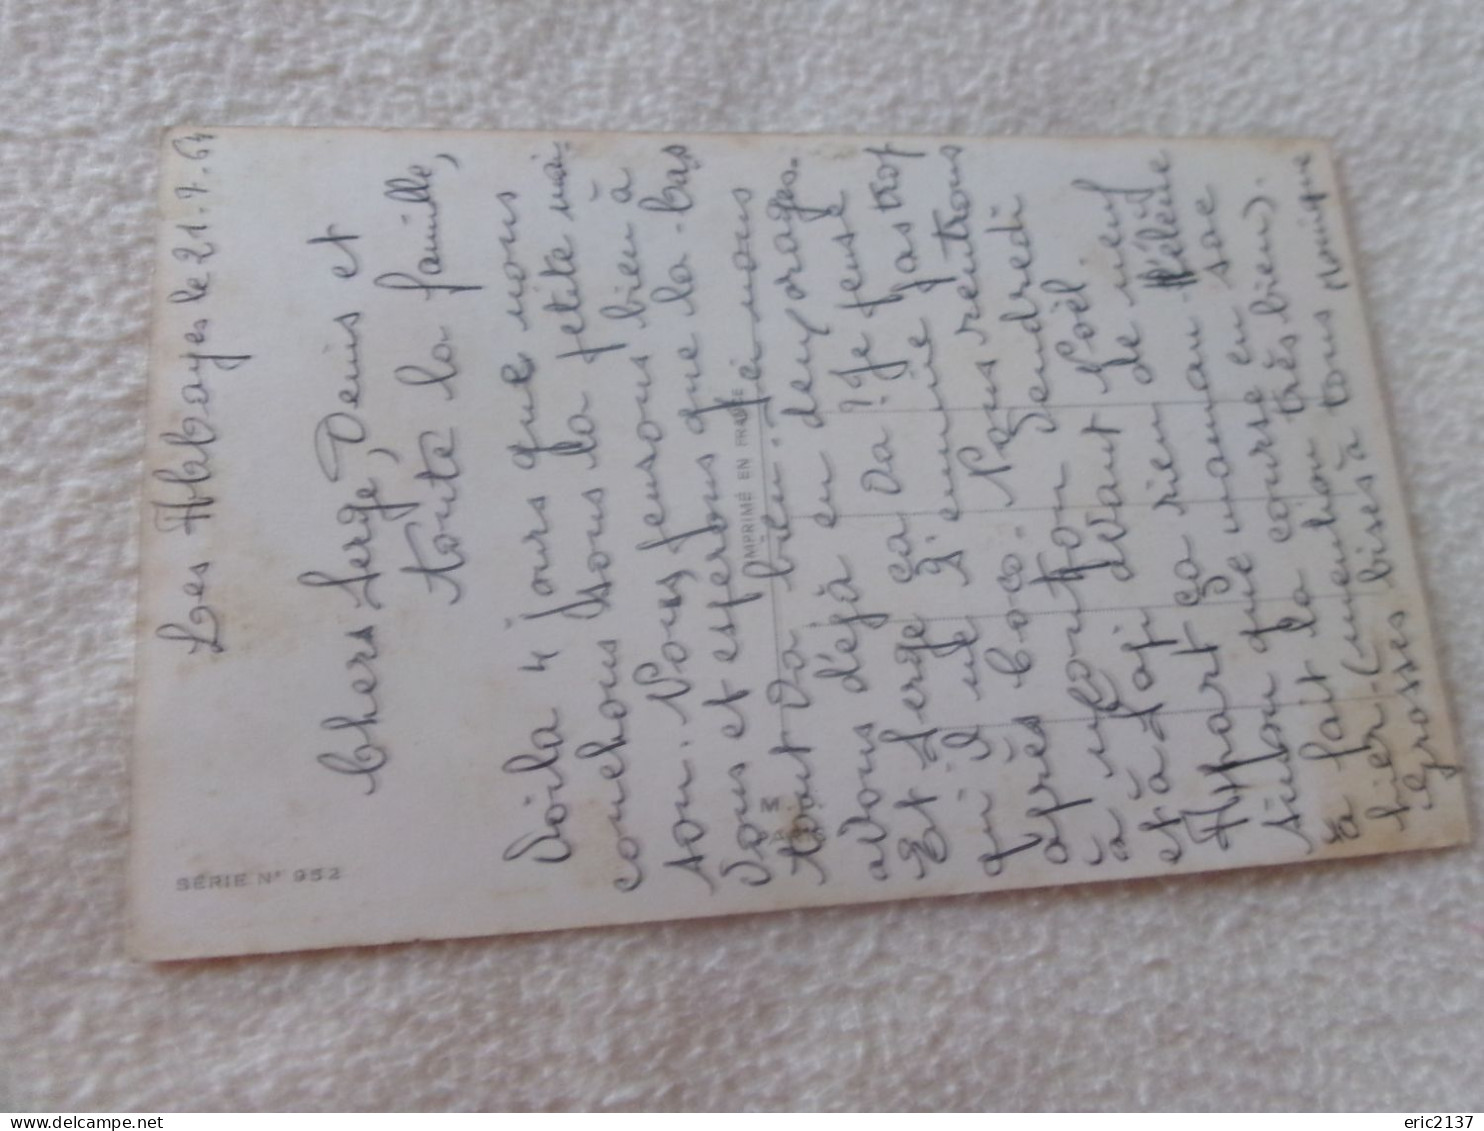 SÉRIE N° 952
Les Abbayes le 21.7.64
Chers Serge, Denis et
toute la famille,
Voila 4 jours que nous
couchons sous la petite mai-
son. Nous pensons bien à
vous et esperons que la-bas
tout va bien. Ici nous
avons déjà eu deux orages.
Et Serge ça va ? Je pense
qu'il ne s'ennuie pas trop
après coco. Nous rentrons
vendredi
à devant Noël.
et à rien de neuf
Appart ça maman Hélène
sinon que course en sac
a fait la très bien).
hier (mention
Grosses bises à tous Monique
IMPRIMÉ EN FRANCE
M
www.delcampe.net
eric2137